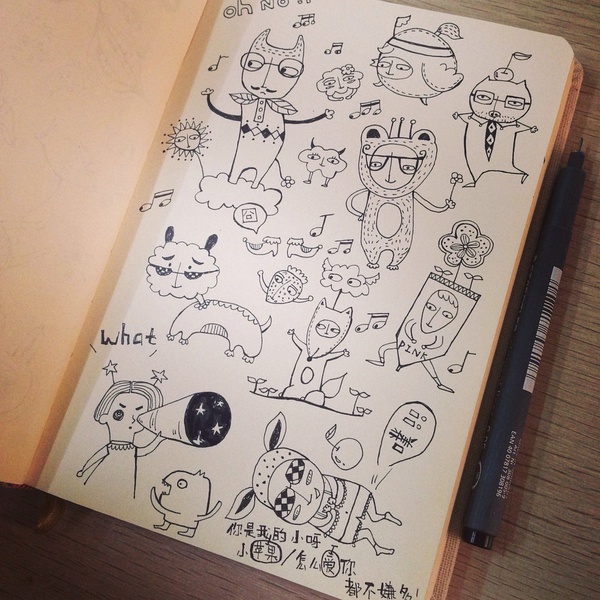 oh No !!
囧
What
PINK
你是我的小呀
小苹果/怎么爱你
都不嫌多!
EAN 40 07817 308196